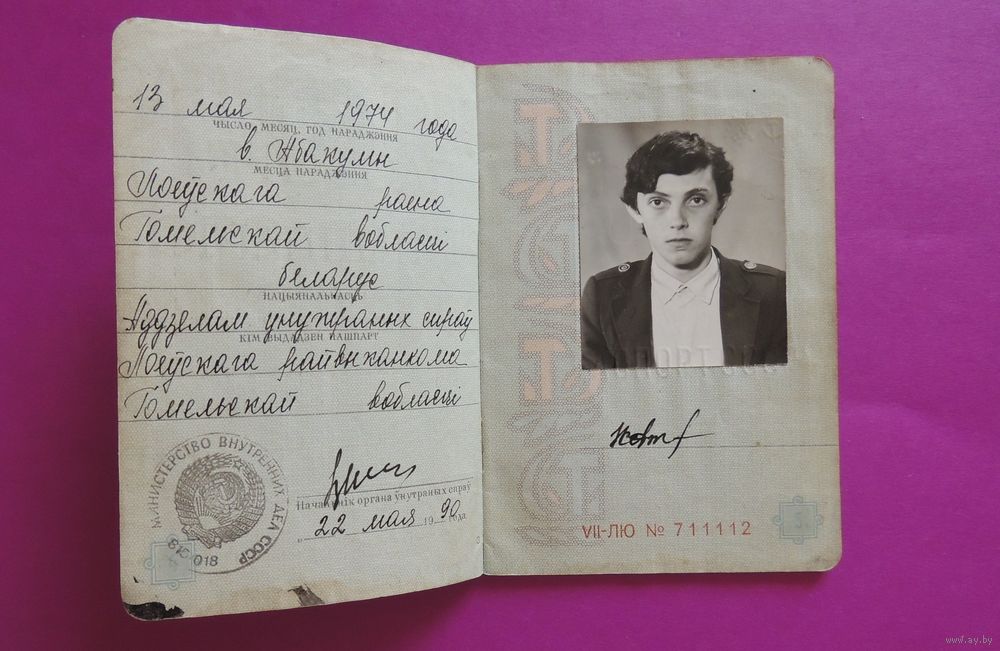 13 мая 1974 года
ЧЫСЛО, МЕСЯЦ, ГОД НАРАДЖЭННЯ
в. Абакумы
МЕСЦА НАРАДЖЭННЯ
Лоеўскага раёна
Гомельскай вобласці
беларус
НАЦЫЯНАЛЬНАСЦЬ
Аддзелам унутраных спраў
КІМ ВЫДАДЗЕН ПАШПАРТ
Лоеўскага райвыканкома
Гомельскай вобласці
МИНИСТЕРСТВО ВНУТРЕННИХ ДЕЛ СССР
018
Начальнік органа ўнутраных спраў
„22 мая 1990 года
VII-ЛЮ № 711112
www.ay.by